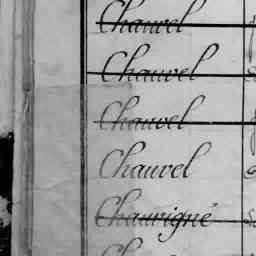 Chauvel
Chauvel
Chauvel
Chauvel
Chauvigné